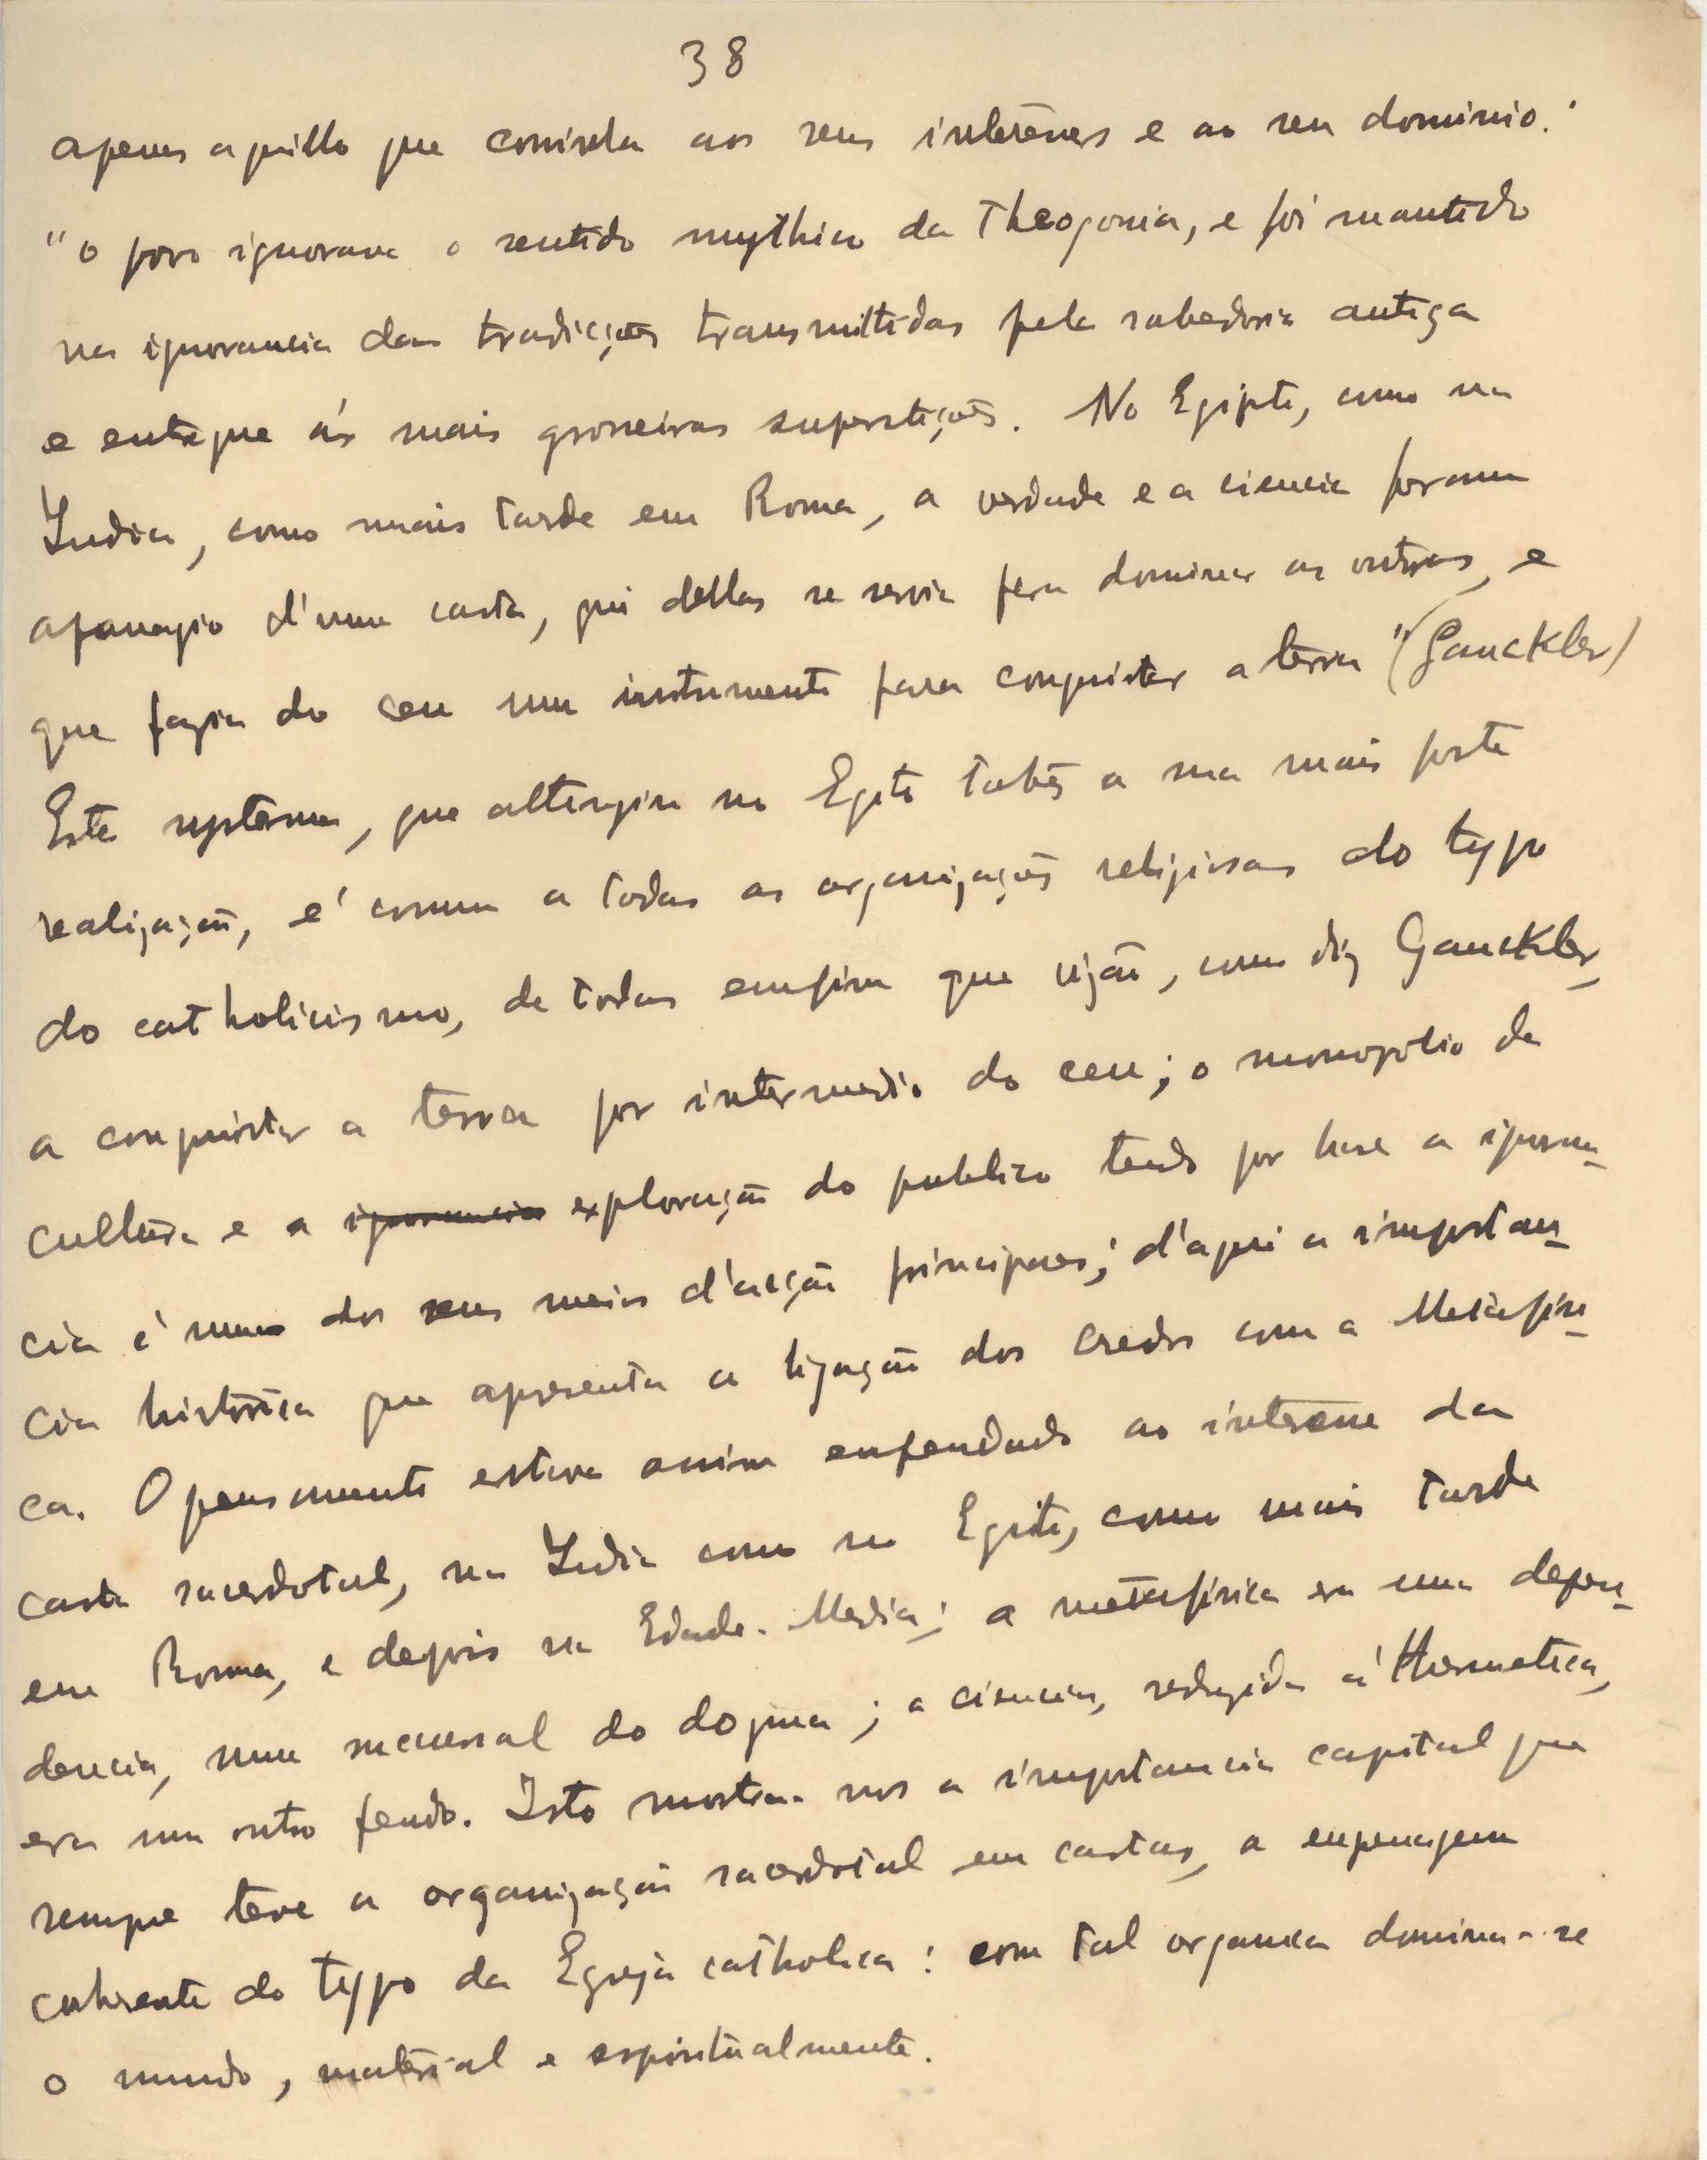 38
apenas aquillo que convinha aos seus interesses e ao seu dominio:
"o povo ignorava o sentido mythico da Theogonia, e foi mantido
na ignorancia das tradicções transmittidas pela sabedoria antiga
e entregue ás mais grosseiras superstições. No Egipto, como na
India, como mais tarde em Roma, a verdade e a ciencia foram
apanagio d'uma casta, que dellas se servia para dominar as outras, e
que fazia do ceu um instrumento para conquistar a terra" (Gauckler)
Este systema, que attingiu no Egito talvez a sua mais forte
realização, é comum a todas as organizações religiosas do typo
do catholicismo, de todas emfim que visão, como diz Gauckler,
a conquistar a terra por intermedio do ceu; o monopolio da
cultura e a ignorancia exploração do publico tendo por base a ignoran-
cia é um dos seus meios d'acção principaes; d'aqui a importan-
cia historica que apresenta a ligação dos credos com a Metafisi-
ca. O pensamento estava assim enfeudado ao interesse da
casta sacerdotal, na India como no Egito, como mais tarde
em Roma, e depois na Edade-Media; a metafisica era uma depen-
dencia, uma sucursal do dogma; a ciencia, reduzida á Hermetica,
era um outro feudo. Isto mostra-nos a importancia capital que
sempre teve a organização sacerdotal em castas, a
coherente do typo da Egreja catholica: com tal organica domina-se
o mundo, material e espiritualmente.